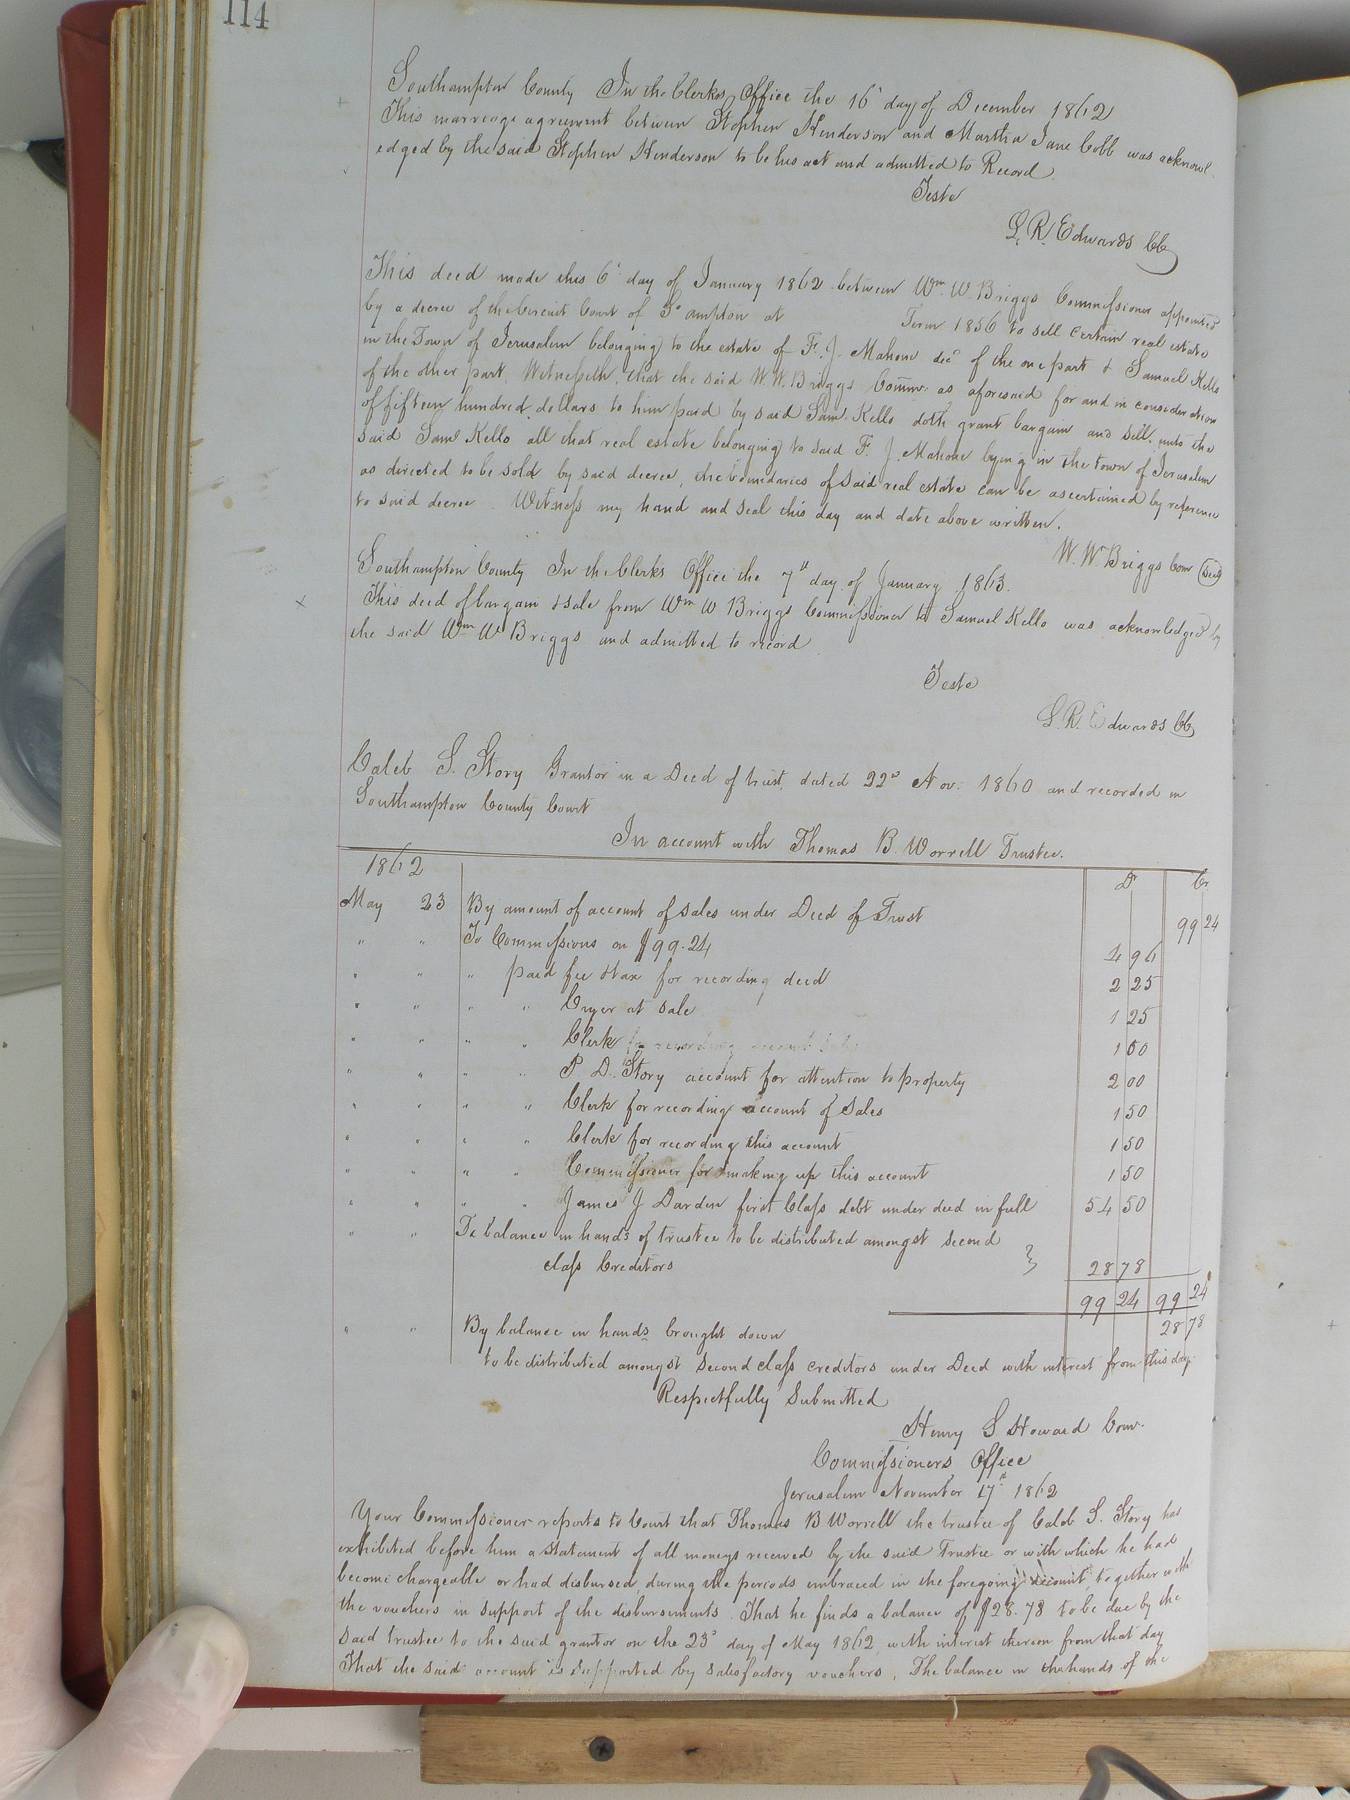 114
Southampton County In the Clerks Office the 16' day of December 1862
This marriage agreement between Stephen Henderson and Martha Jane Cobb was acknowl
edged by the said Stephen Henderson to be his act and admitted to Record
Teste
L. R. Edwards CC
This deed made this 6' day of January 1862 between Wm W. Briggs Commissioner appointed
by a decree of the Circuit Court of So ampton at Term 1856 to sell certain real estate
in the Town of Jerusalem belonging to the estate of F. J. Mahone decd of the one part & Samuel Kello
of the other part. Witnesseth, that the said W. W. Briggs Commr. as aforesaid for and in consideration
of fifteen hundred dollars to him paid by said Saml Kello doth grant bargain and sell, unto the
said Saml Kello all that real estate belonging to said F. J. Mahone lying in the town of Jerusalem
as directed to be sold by said decree, the boundaries of said real estate can be ascertained by reference
to said decree. Witness my hand and seal this day and date above written.
W. W Briggs Com Seal
Southampton County In the Clerks Office the 7th day of January 1863.
This deed of bargain & sale from Wm W Briggs Commissioner to Samuel Kello was acknowledged by
the said Wm W Briggs and admitted to record
Teste
L. R. Edwards CC
Caleb S. Story Grantor in a Deed of trust, dated 22d Nov. 1860 and recorded in
Southampton County Court
In account with Thomas B. Worrell Trustee.
1862 Dr Cr
May 23 By amount of account of sales under Deed of Trust 99 24
" " To Commissions on $99.24 4 96
" " " paid fee & tax for recording deed 2 25
" " " " Cryer at sale 1 25
" " " " Clerk for recording account Sales 1 00
" " " " P. D. Story account for attention to property 2 00
" " " " Clerk for recording account of sales 1 50
" " " " Clerk for recording this account 1 50
" " " " Commissioner for making up this account 1 50
" " " " James J Darden first Class debt under deed in full 54 50
" " To balance in hands of trustee to be distributed amongst second
class Creditors } 28 78
99 24 99 24
" " By balance in hands brought down 28 78
to be distributed amongst second class creditors under Deed with interest from this day
Respectfully Submitted
Henry S Howard Comr.
Commissioners Office
Jerusalem November 17th 1862
Your Commissioner reports to Court that Thomas B Worrell the trustee of Caleb S. Story has
exhibited before him a Statement of all moneys received by the said Trustee or with which he had
become chargeable or had disbursed, during the periods embraced in the foregoing account, together with
the vouchers in support of the disbursements. That he finds a balance of $28.78 to be due by the
said trustee to the said grantor on the 23d day of May 1862 with interest thereon from that day
That the said account is supported by satisfactory vouchers. The balance in the hands of the